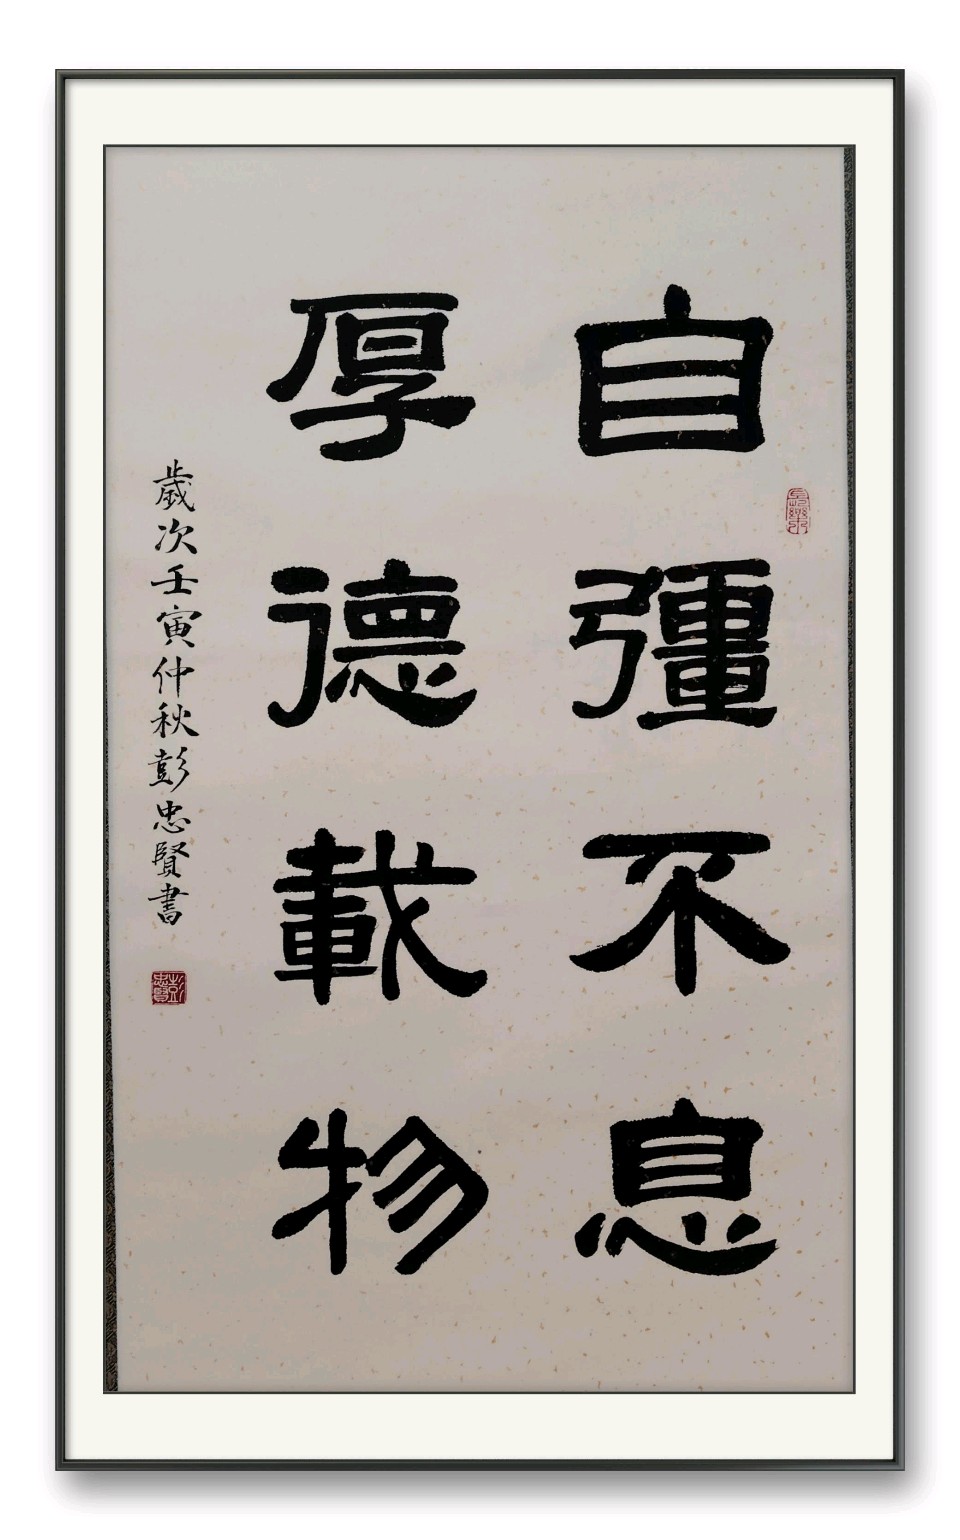 自彊不息
厚德載物
歲次壬寅仲秋彭忠賢書
彭忠賢